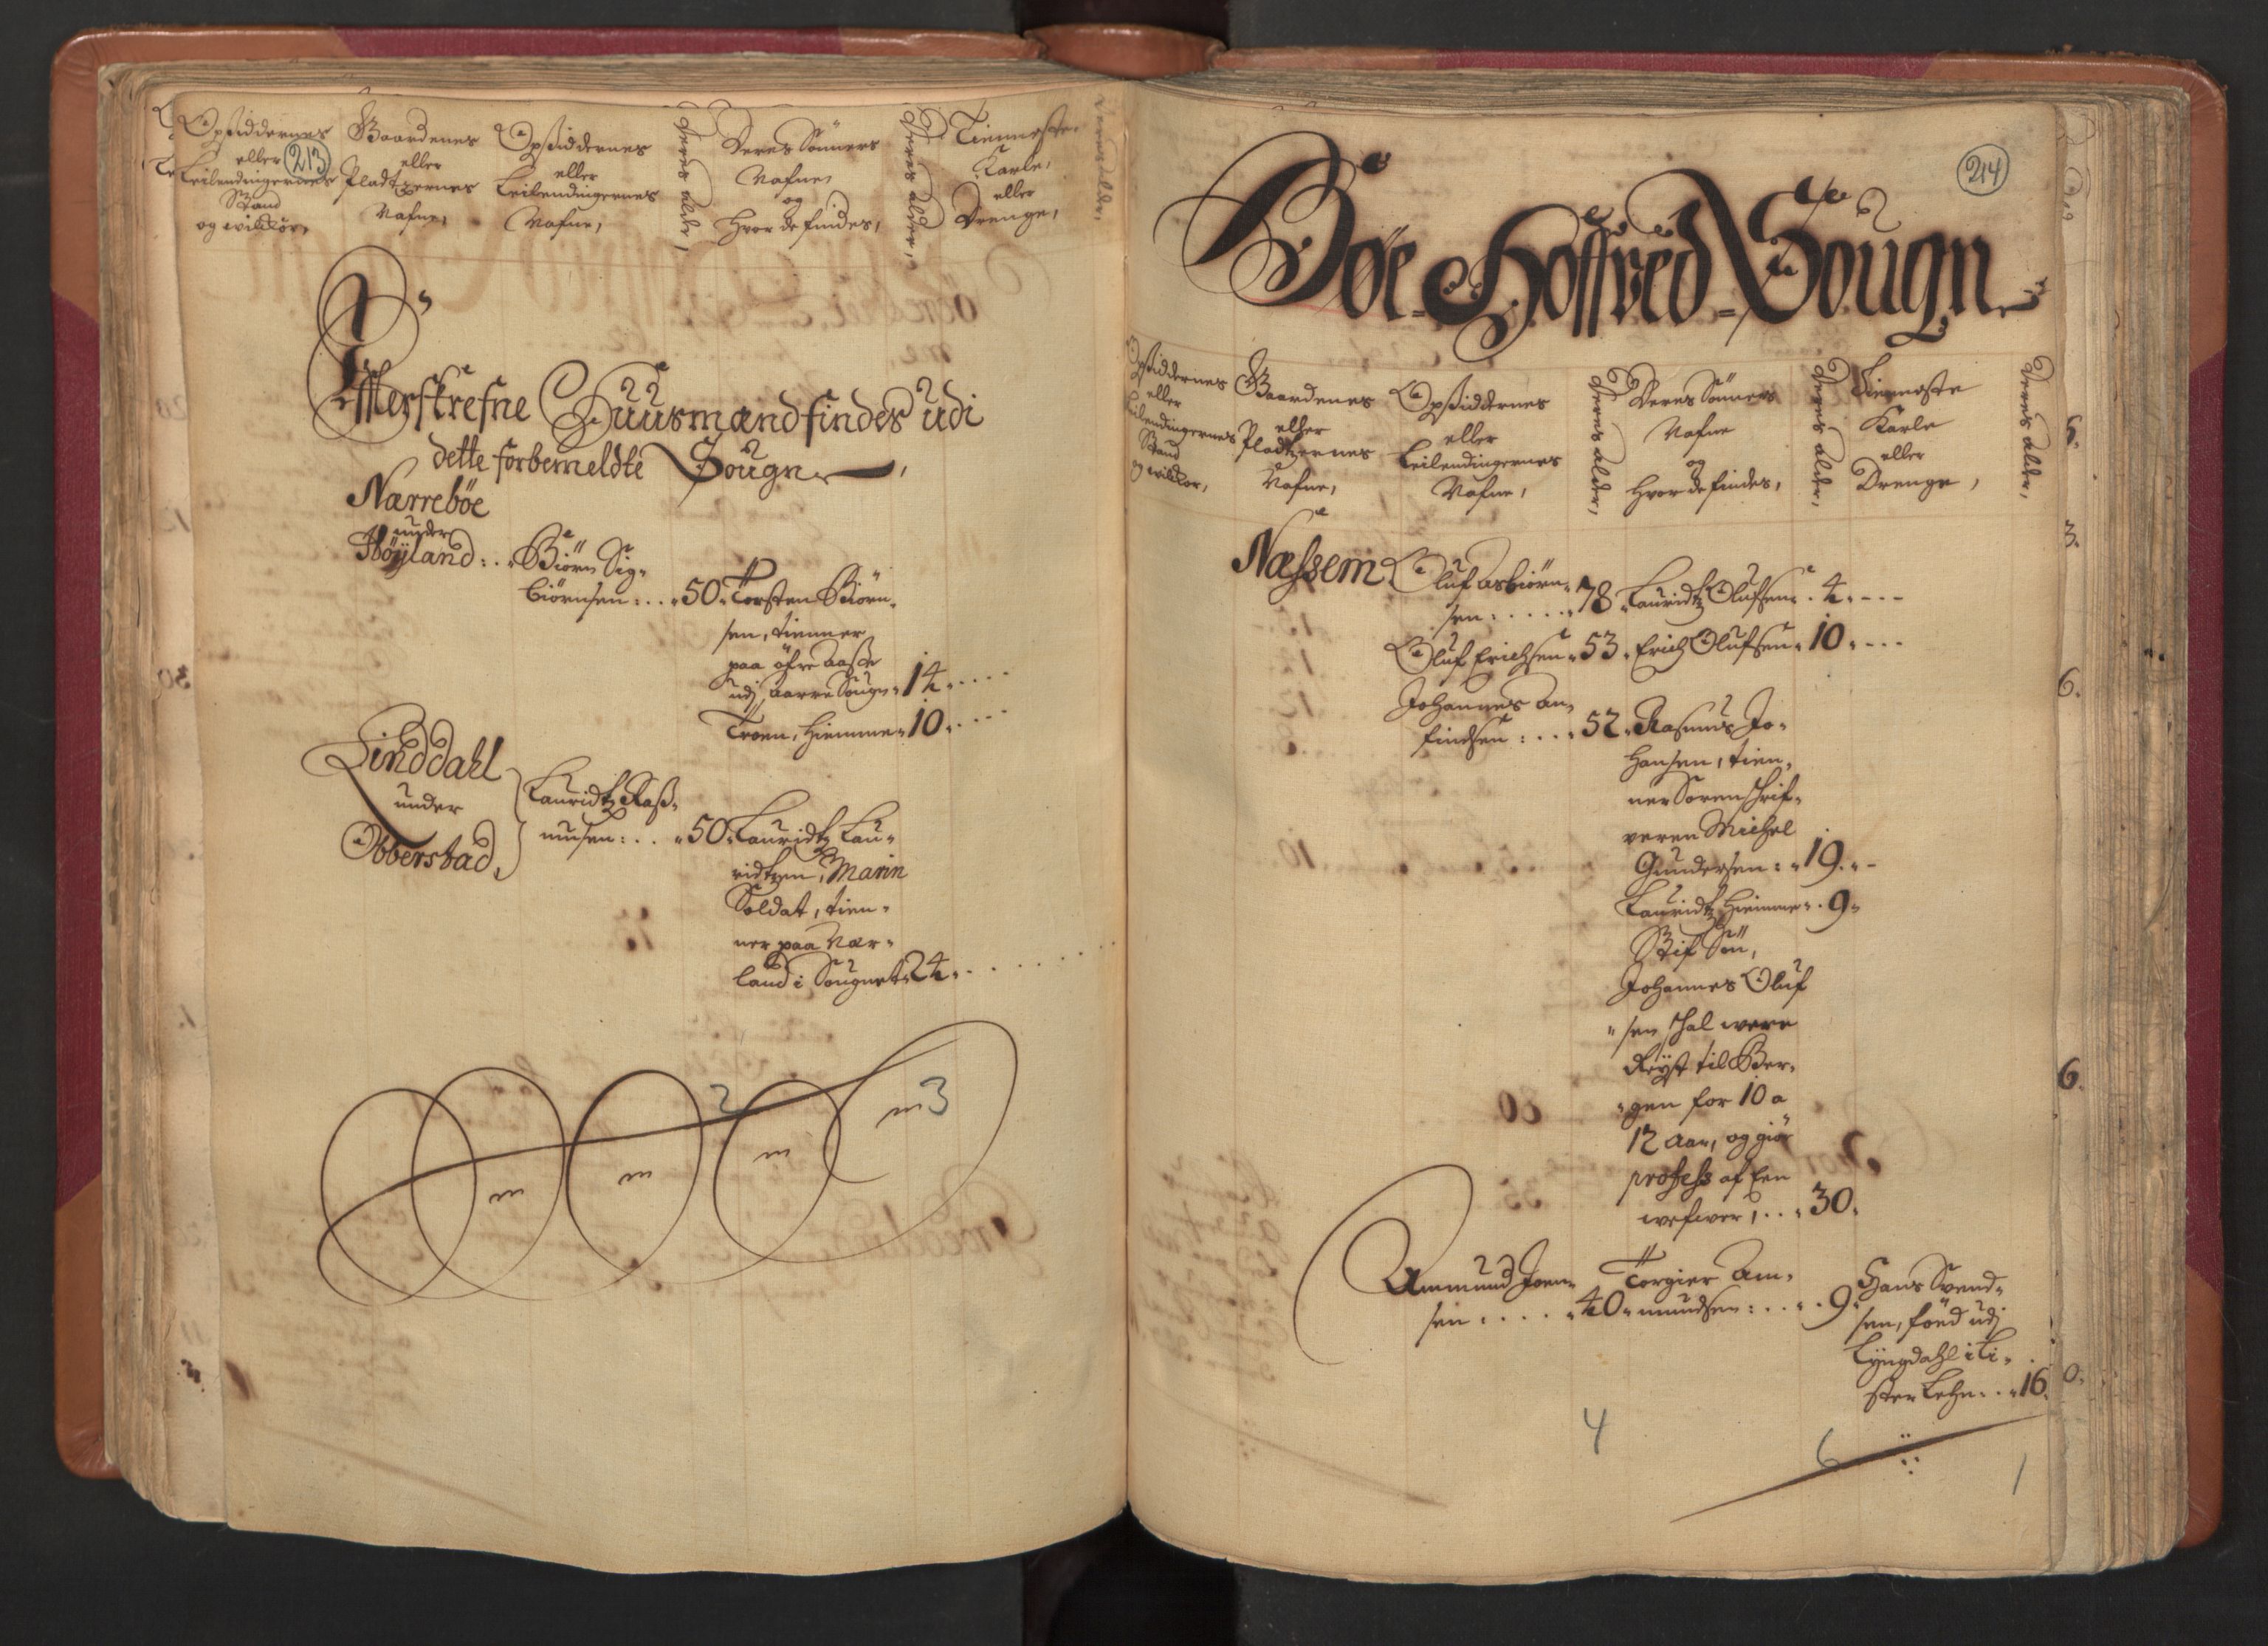 213
Opsiddernes
eller
Leilendingernes
Stand
og wilckor,
Gaardenes
eller
Pladtzernes
Nafne,
Opsiddernes
eller
Leilendingernes
Nafne,
Deres alder,
Deres Sönners
Nafne,
og
hvor de findes,
Deres alder,
Tienneste
Karle,
eller
Drenge,
Deres alder,
Efterskrefne Huusmænd findes udi
dette forbemeldte Sougn,
Nærreböe
under
Höyland: Biörn Sig-
biörnsen: 50. Torsten Biörn-
sen, tienner
paa öfre Aasse
udj Aarre Sougn 14.
Troen, hiemme 10.
Linddahl
under
Obberstad,
Lauridtz Rass-
musen: 50. Lauridtz Lau-
ridtzen, Marin
Soldat, tien-
ner paa Nær-
land i Sougnet 24.
2
m m m m 3
214
Böe-Hoffved-Sougn
Opsiddernes
eller
Leilendingernes
Stand
og wilckor,
Gaardenes
eller
Pladtzernes
Nafne,
Opsiddernes
eller
Leilendingernes
Nafne,
Deres alder,
Deres Sönners
Nafne
og
hvor de findes,
Deres alder,
Tienneste
Karle
eller
Drenge,
Deres alder,
Næssem Oluf Asbiörn-
sen: 78. Lauridtz Olufsen 4.
Oluf Erichsen 53. Erich Olufsen 10.
Johannes An-
findsen: 52. Rasmus Jo-
hansen, tien-
ner Sorenschrif-
veren Michel
Gundersen: 19.
Lauridtz hiemme 9
Stif Sön,
Johannes Oluf
sen schal were
Reyst til Ber-
gen for 10 a
12 aar, og giör
profess af Een
wefwer, 30.
Ammund Joen-
sen 40. Torgier Am-
mundsen: 9. Hans Svend-
sen, föed udj
Lyngdahl i Li-
ster Lehn 16.
4
6
1